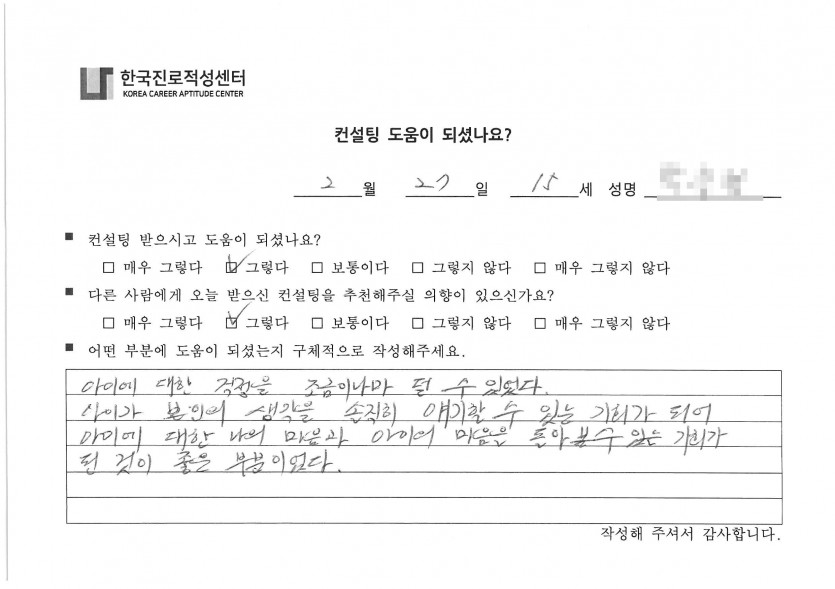 한국진로적성센터
KOREA CAREER APTITUDE CENTER
컨설팅 도움이 되셨나요?
2 월 27 일 15 세 성명
■ 컨설팅 받으시고 도움이 되셨나요?
□ 매우 그렇다 ☑ 그렇다 □ 보통이다 □ 그렇지 않다 □ 매우 그렇지 않다
■ 다른 사람에게 오늘 받으신 컨설팅을 추천해주실 의향이 있으신가요?
□ 매우 그렇다 ☑ 그렇다 □ 보통이다 □ 그렇지 않다 □ 매우 그렇지 않다
■ 어떤 부분에 도움이 되셨는지 구체적으로 작성해주세요.
아이에 대한 걱정을 조금이나마 덜 수 있었다.
아이가 본인의 생각을 솔직히 얘기할 수 있는 기회가 되어
아이에 대한 나의 마음과 아이의 마음을 돌아볼 수 있는 기회가
된 것이 좋은 부분이었다.
작성해 주셔서 감사합니다.